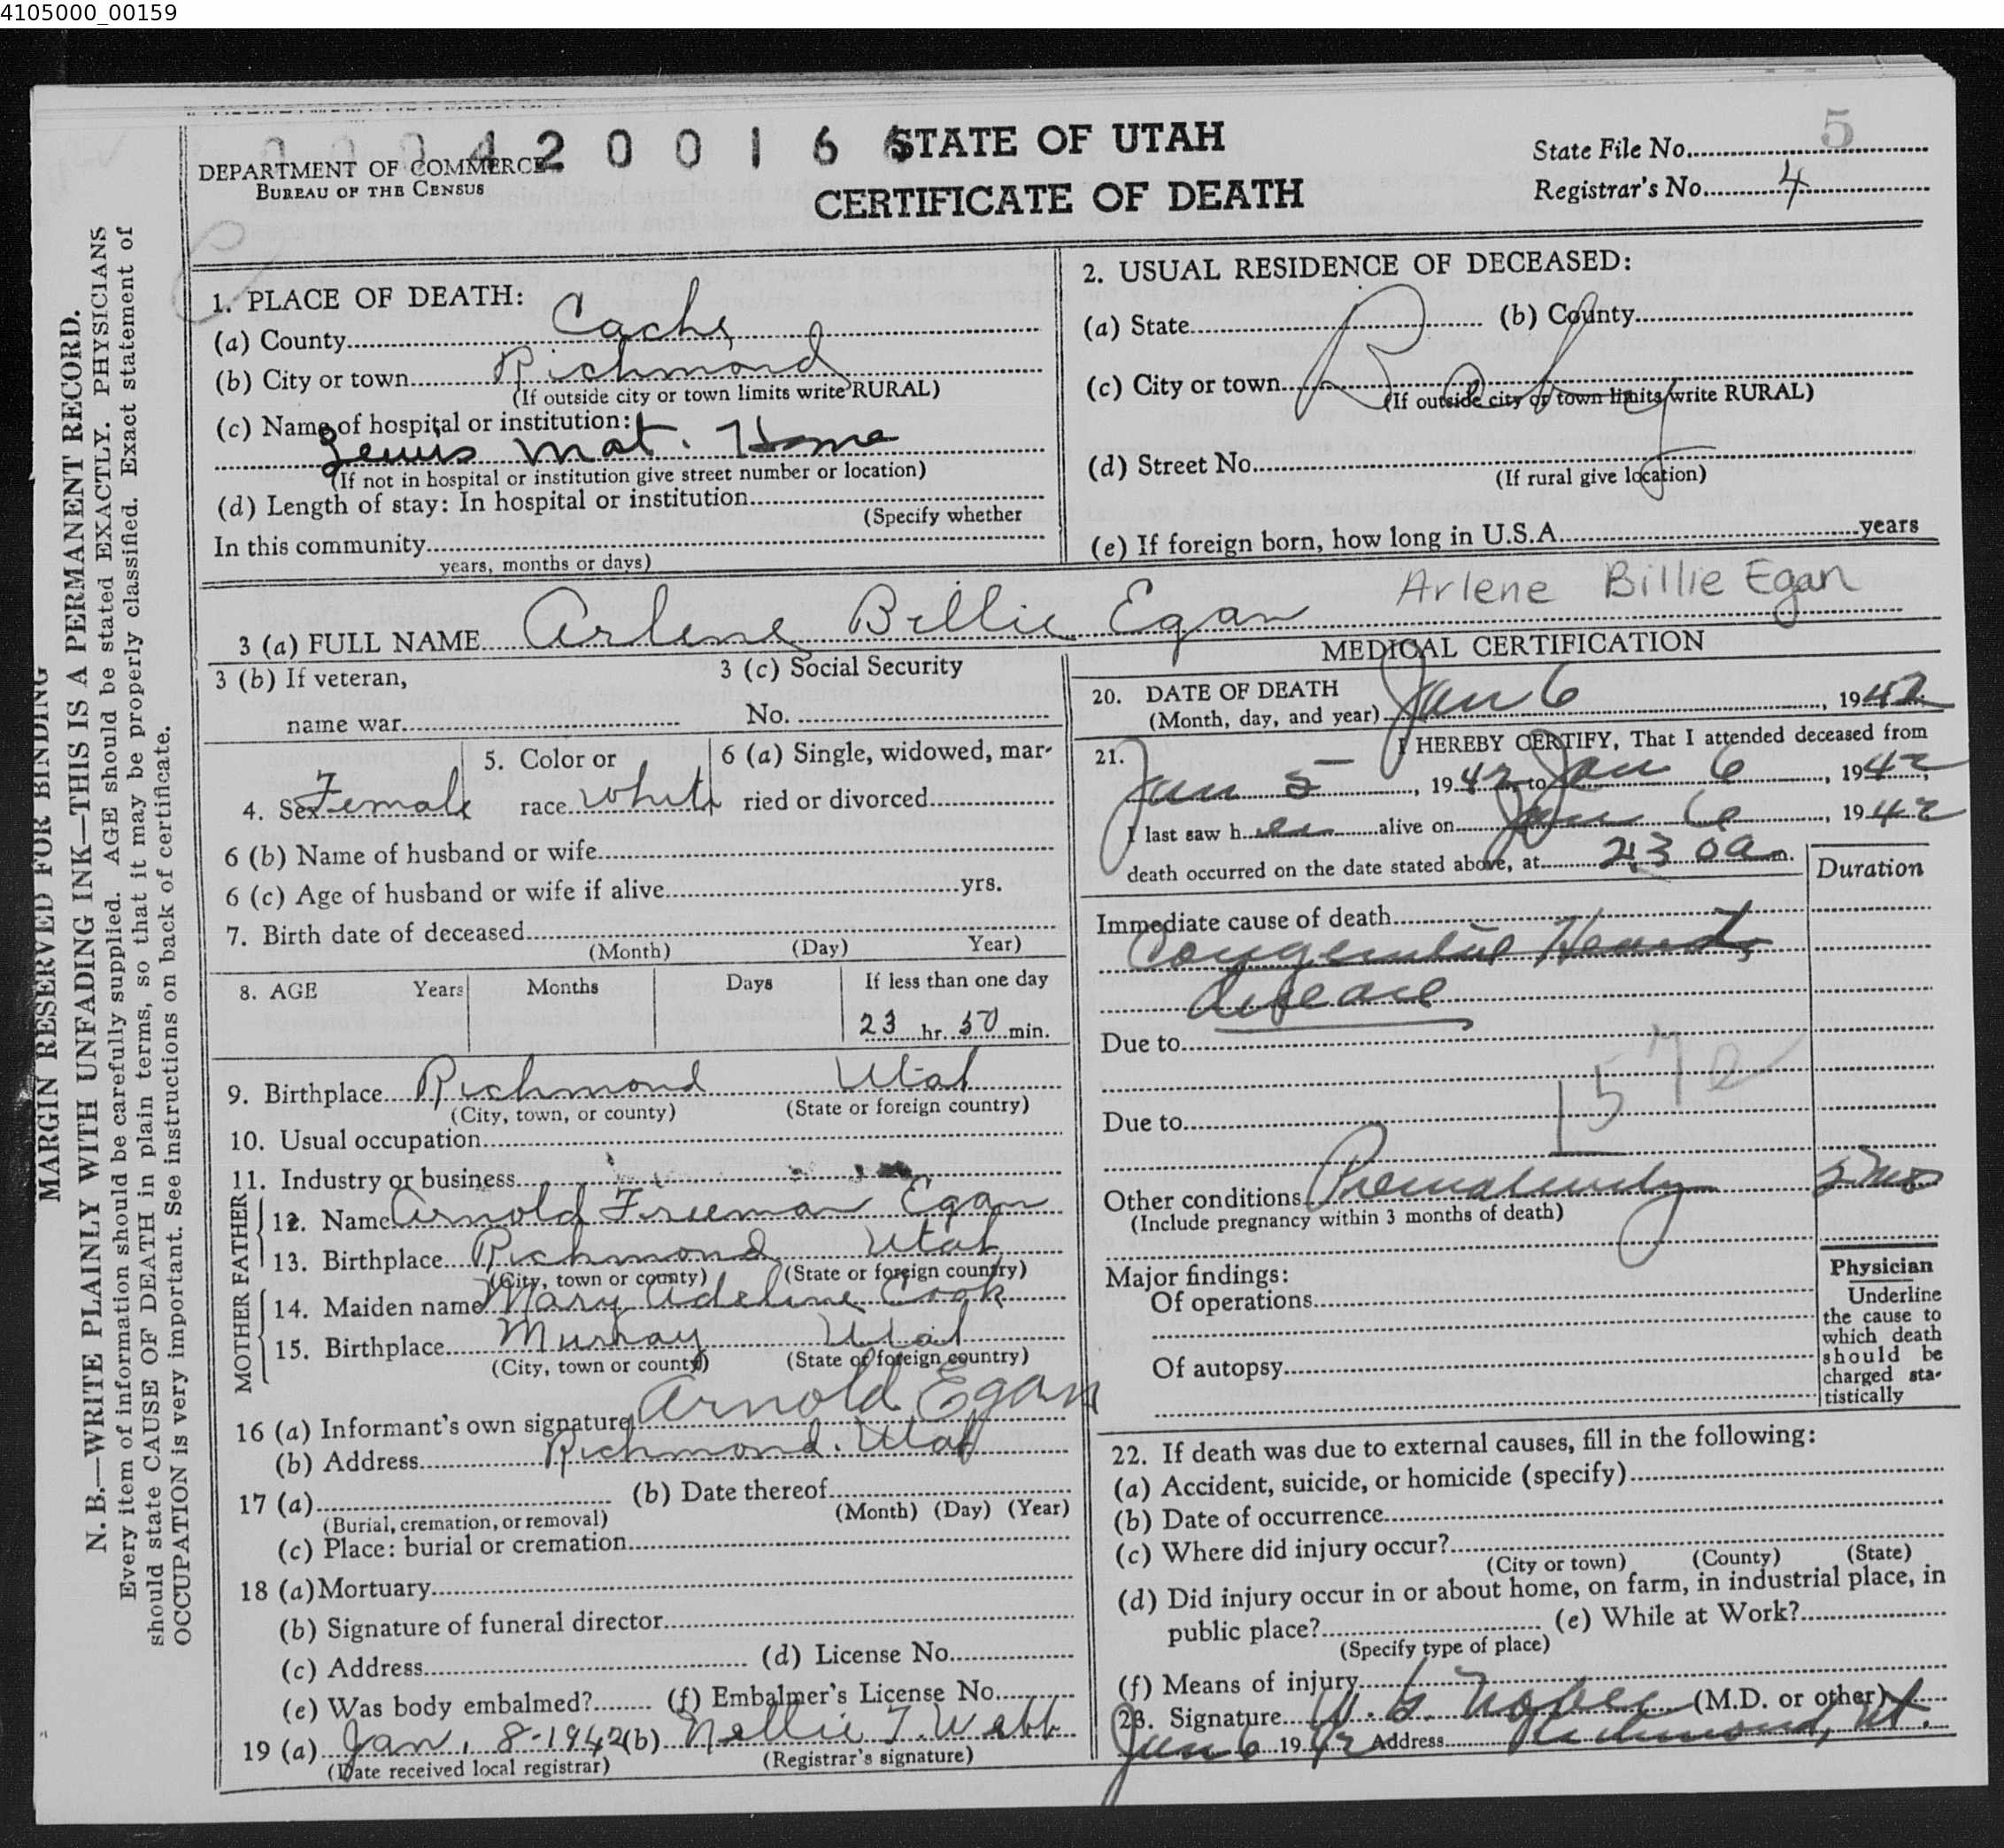 4105000_00159
MARGIN RESERVED FOR BINDING
N. B.—WRITE PLAINLY WITH UNFADING INK—THIS IS A PERMANENT RECORD.
Every item of information should be carefully supplied. AGE should be stated EXACTLY. PHYSICIANS
should state CAUSE OF DEATH in plain terms, so that it may be properly classified. Exact statement of
OCCUPATION is very important. See instructions on back of certificate.
4 2 0 0 1 6
DEPARTMENT OF COMMERCE
BUREAU OF THE CENSUS
STATE OF UTAH
CERTIFICATE OF DEATH
State File No. 5
Registrar's No. 4
1. PLACE OF DEATH:
(a) County Cache
(b) City or town Richmond
(If outside city or town limits write RURAL)
(c) Name of hospital or institution:
Lewis Mat. Home
(If not in hospital or institution give street number or location)
(d) Length of stay: In hospital or institution
(Specify whether
In this community
years, months or days)
2. USUAL RESIDENCE OF DECEASED:
(a) State (b) County
(c) City or town
Baby
(If outside city or town limits write RURAL)
(d) Street No.
(If rural give location)
(e) If foreign born, how long in U.S.A. years
3 (a) FULL NAME Arlene Billie Egan Arlene Billie Egan
3 (b) If veteran,
name war
3 (c) Social Security
No.
4. Sex Female
5. Color or
race White
6 (a) Single, widowed, mar-
ried or divorced
6 (b) Name of husband or wife
6 (c) Age of husband or wife if alive yrs.
7. Birth date of deceased
(Month) (Day) Year)
8. AGE Years Months Days If less than one day
23 hr. 30 min.
9. Birthplace Richmond Utah
(City, town, or county) (State or foreign country)
10. Usual occupation
11. Industry or business
FATHER
12. Name Arnold Freeman Egan
13. Birthplace Richmond Utah
(City, town or county) (State or foreign country)
MOTHER
14. Maiden name Mary Adeline Cook
15. Birthplace Murray Utah
(City, town or county) (State of foreign country)
16 (a) Informant's own signature Arnold Egan
(b) Address Richmond. Utah
17 (a) (b) Date thereof
(Burial, cremation, or removal) (Month) (Day) (Year)
(c) Place: burial or cremation
18 (a) Mortuary
(b) Signature of funeral director
(c) Address (d) License No.
(e) Was body embalmed? (f) Embalmer's License No.
19 (a) Jan. 8-1942 (b) Nellie T. Webb
(Date received local registrar) (Registrar's signature)
MEDICAL CERTIFICATION
20. DATE OF DEATH
(Month, day, and year) Jan 6, 1942
21. I HEREBY CERTIFY, That I attended deceased from
Jan 5, 1942, to Jan 6, 1942,
I last saw her alive on Jan 6, 1942
death occurred on the date stated above, at 2:30 a m.
Duration
Immediate cause of death
Congenital Heart
disease
Due to
157e
Due to
Other conditions Prematurity 2 mo
(Include pregnancy within 3 months of death)
Major findings:
Of operations
Of autopsy
Physician
Underline
the cause to
which death
should be
charged sta-
tistically
22. If death was due to external causes, fill in the following:
(a) Accident, suicide, or homicide (specify)
(b) Date of occurrence
(c) Where did injury occur?
(City or town) (County) (State)
(d) Did injury occur in or about home, on farm, in industrial place, in
public place? (e) While at Work?
(Specify type of place)
(f) Means of injury
23. Signature (M.D. or other)
Jan 6 1942 Address Richmond, Ut.